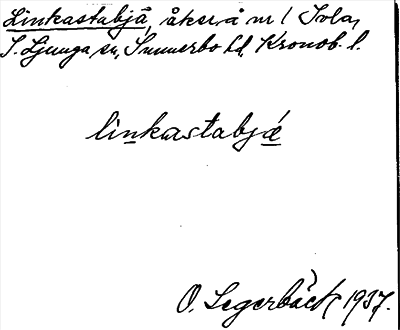 Linkastabjä, åker, å nr 1 Sola,
S. Ljunga sn, Sunnerbo hd, Kronob. l.
linkastabjǽ
O. Segerbäck, 1937.